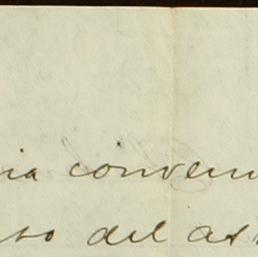 ia conven
so del as